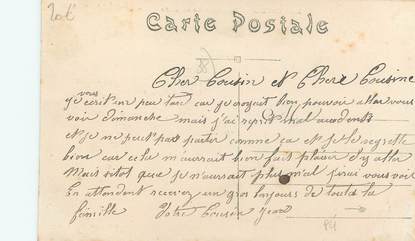 20€
Carte Postale
Cher Cousin et Chere Cousine
je vous ecrit un peu tard car je croyait bien pouvoir aller vous
voir dimanche mais j'ai repris mal au dents
et je ne peut pas partir comme ça et je le regrette
bien car cela m'aurrait bien fait plaisir d'y aller
Mais sitot que je n'aurrait plus mal j'irai vous voir
En attendent recevez un gros bonjours de toute la
famille Votre Cousin Jean